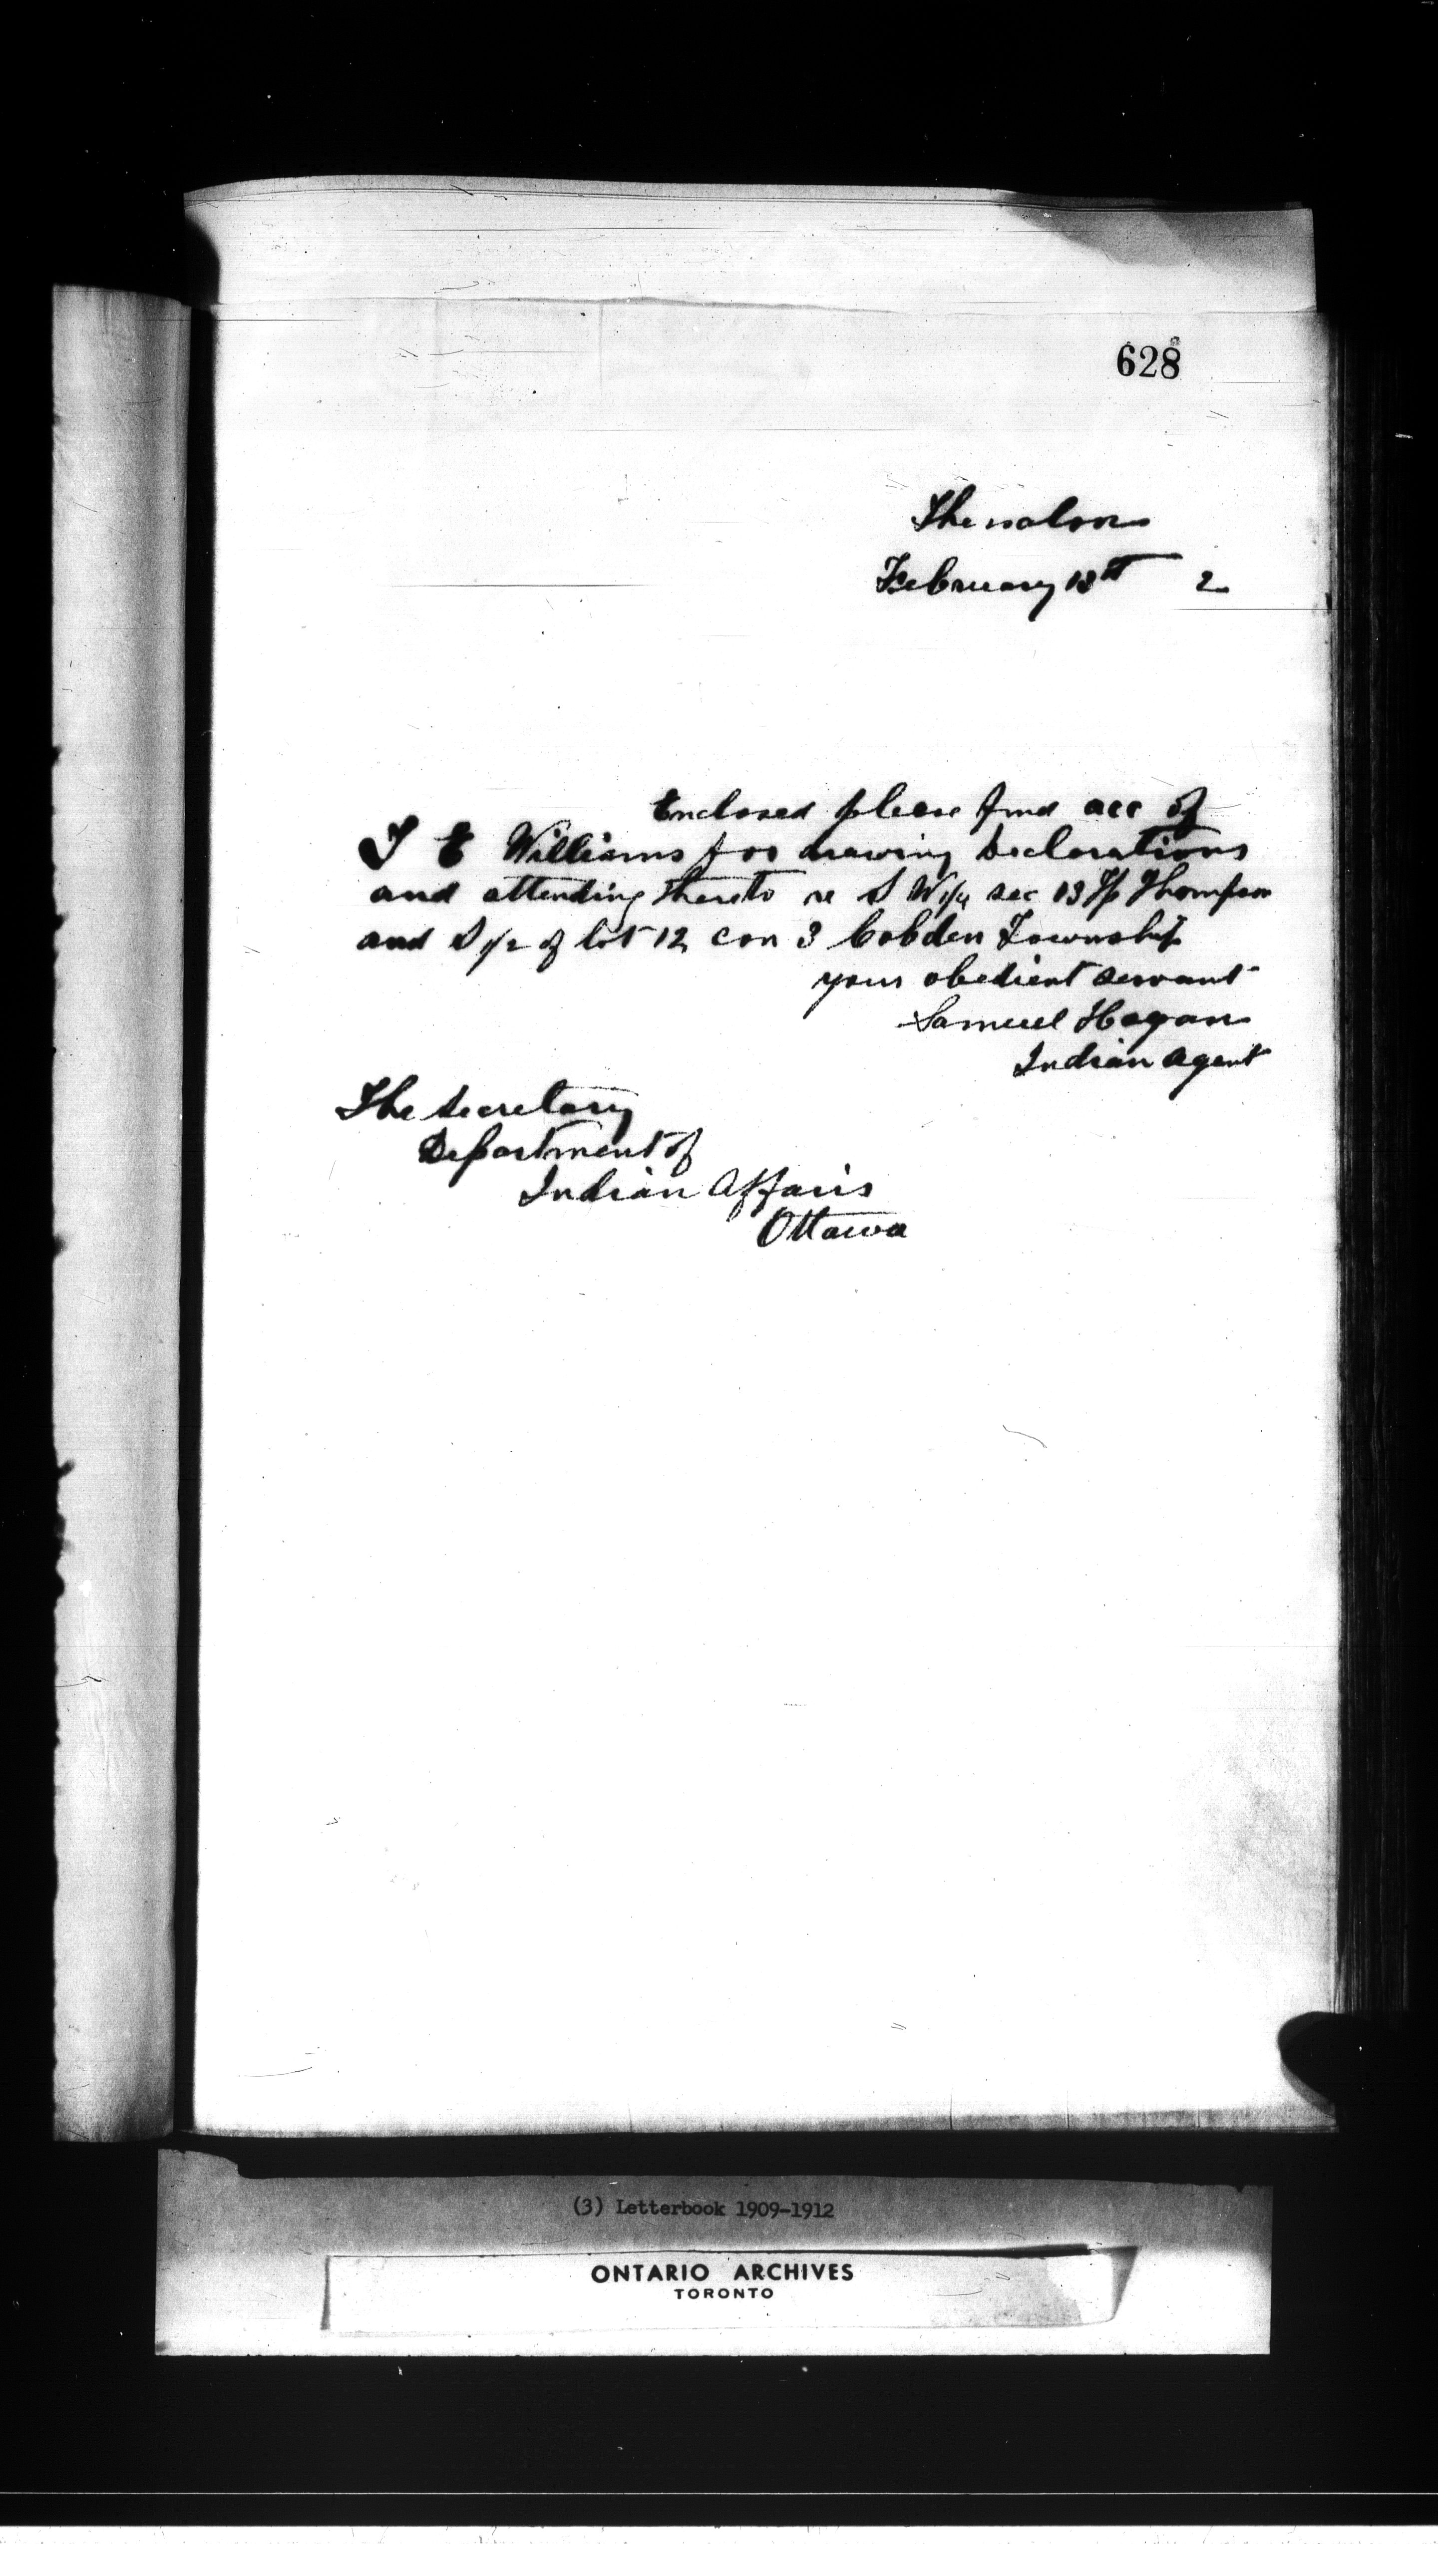 628
Thessalon
February 13th 2
Enclosed please find acc of
T E Williams for drawing Declarations
and attending thereto re S W 1/4 sec 13 Tp Thompson
and S 1/2 of lot 12 con 3 Cobden Township
your obedient servant
Samuel Hagan
Indian Agent
The Secretary
Department of
Indian Affairs
Ottawa
(3) Letterbook 1909-1912
ONTARIO ARCHIVES
TORONTO